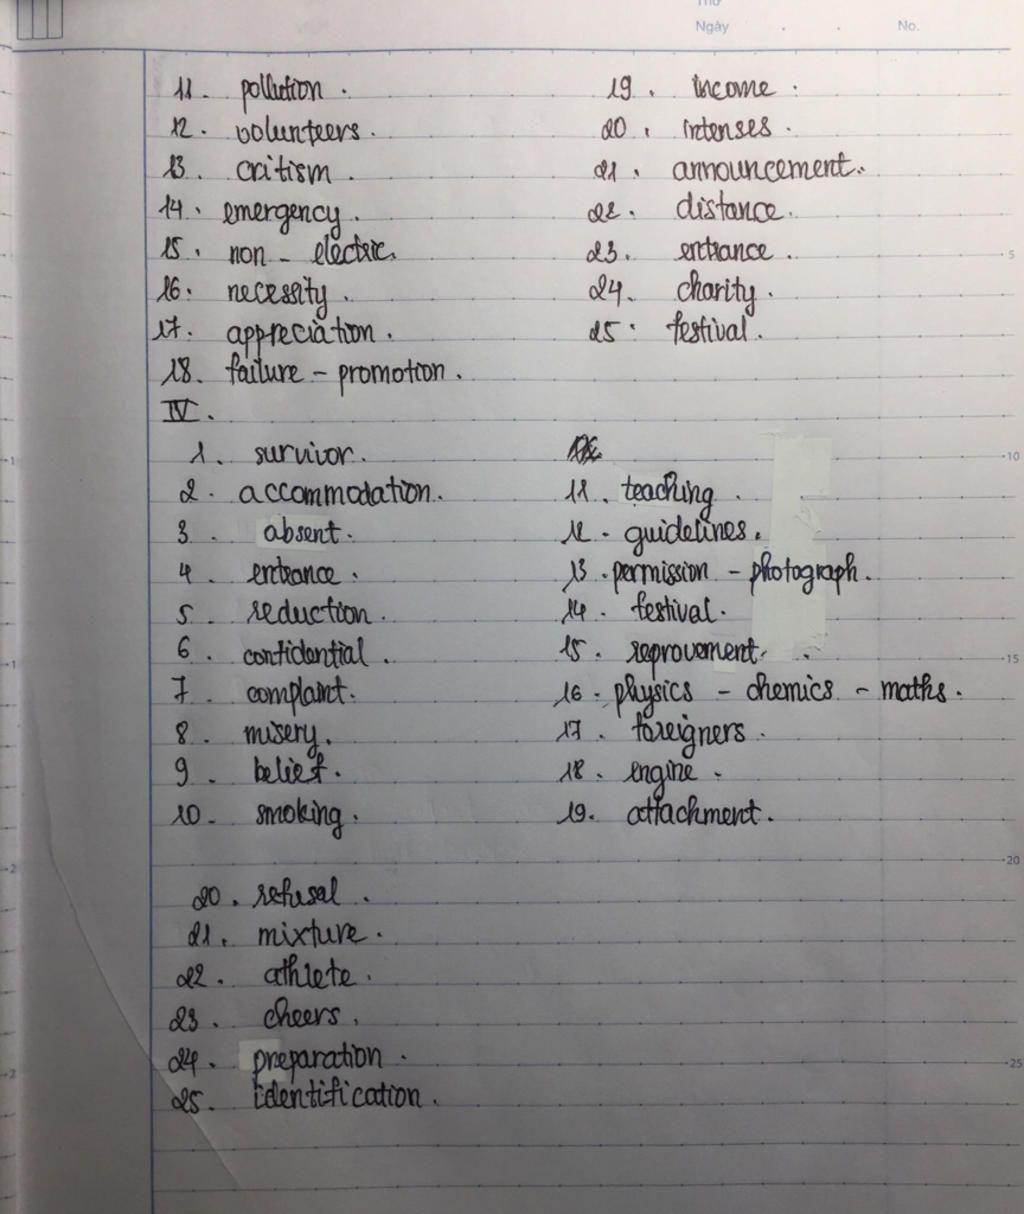 Thứ
Ngày . . No.
11. pollution.
12. volunteers.
13. critism.
14. emergency.
15. non - electric.
16. necessity.
17. appreciation.
18. failure - promotion.
19. income.
20. intenses.
21. announcement.
22. distance.
23. entrance.
24. charity.
25. festival.
IV.
1. survivor.
2. accommodation.
3. absent.
4. entrance.
5. reduction.
6. confidential.
7. complaint.
8. misery.
9. belief.
10. smoking.
11. teaching.
12. guidelines.
13. permission - photograph.
14. festival.
15. reprovement.
16. physics - chemics - maths.
17. foreigners.
18. engine.
19. attachment.
20. refusal.
21. mixture.
22. athlete.
23. cheers.
24. preparation.
25. identification.
5
10
15
20
25